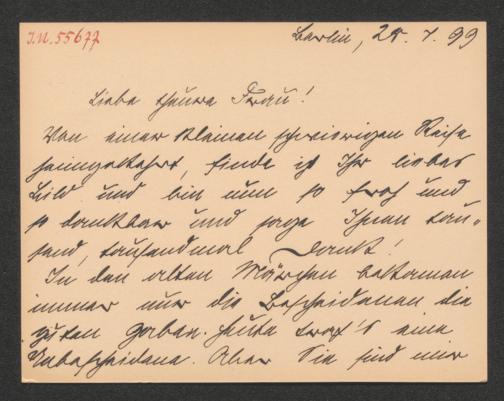 I.N. 55677
Berlin, 25. 1. 99
Liebe theure Frau!
Von einer kleinen schwierigen Reise
heimgekehrt, finde ich Ihr liebes
Bild und bin nun so froh und
so dankbar und sage Ihnen tau-
send, tausendmal Dank!
In den alten Märchen bekommen
immer nur die Bescheidenen die
guten Gaben. Heute traf's eine
Unbescheidene. Aber Sie sind mir